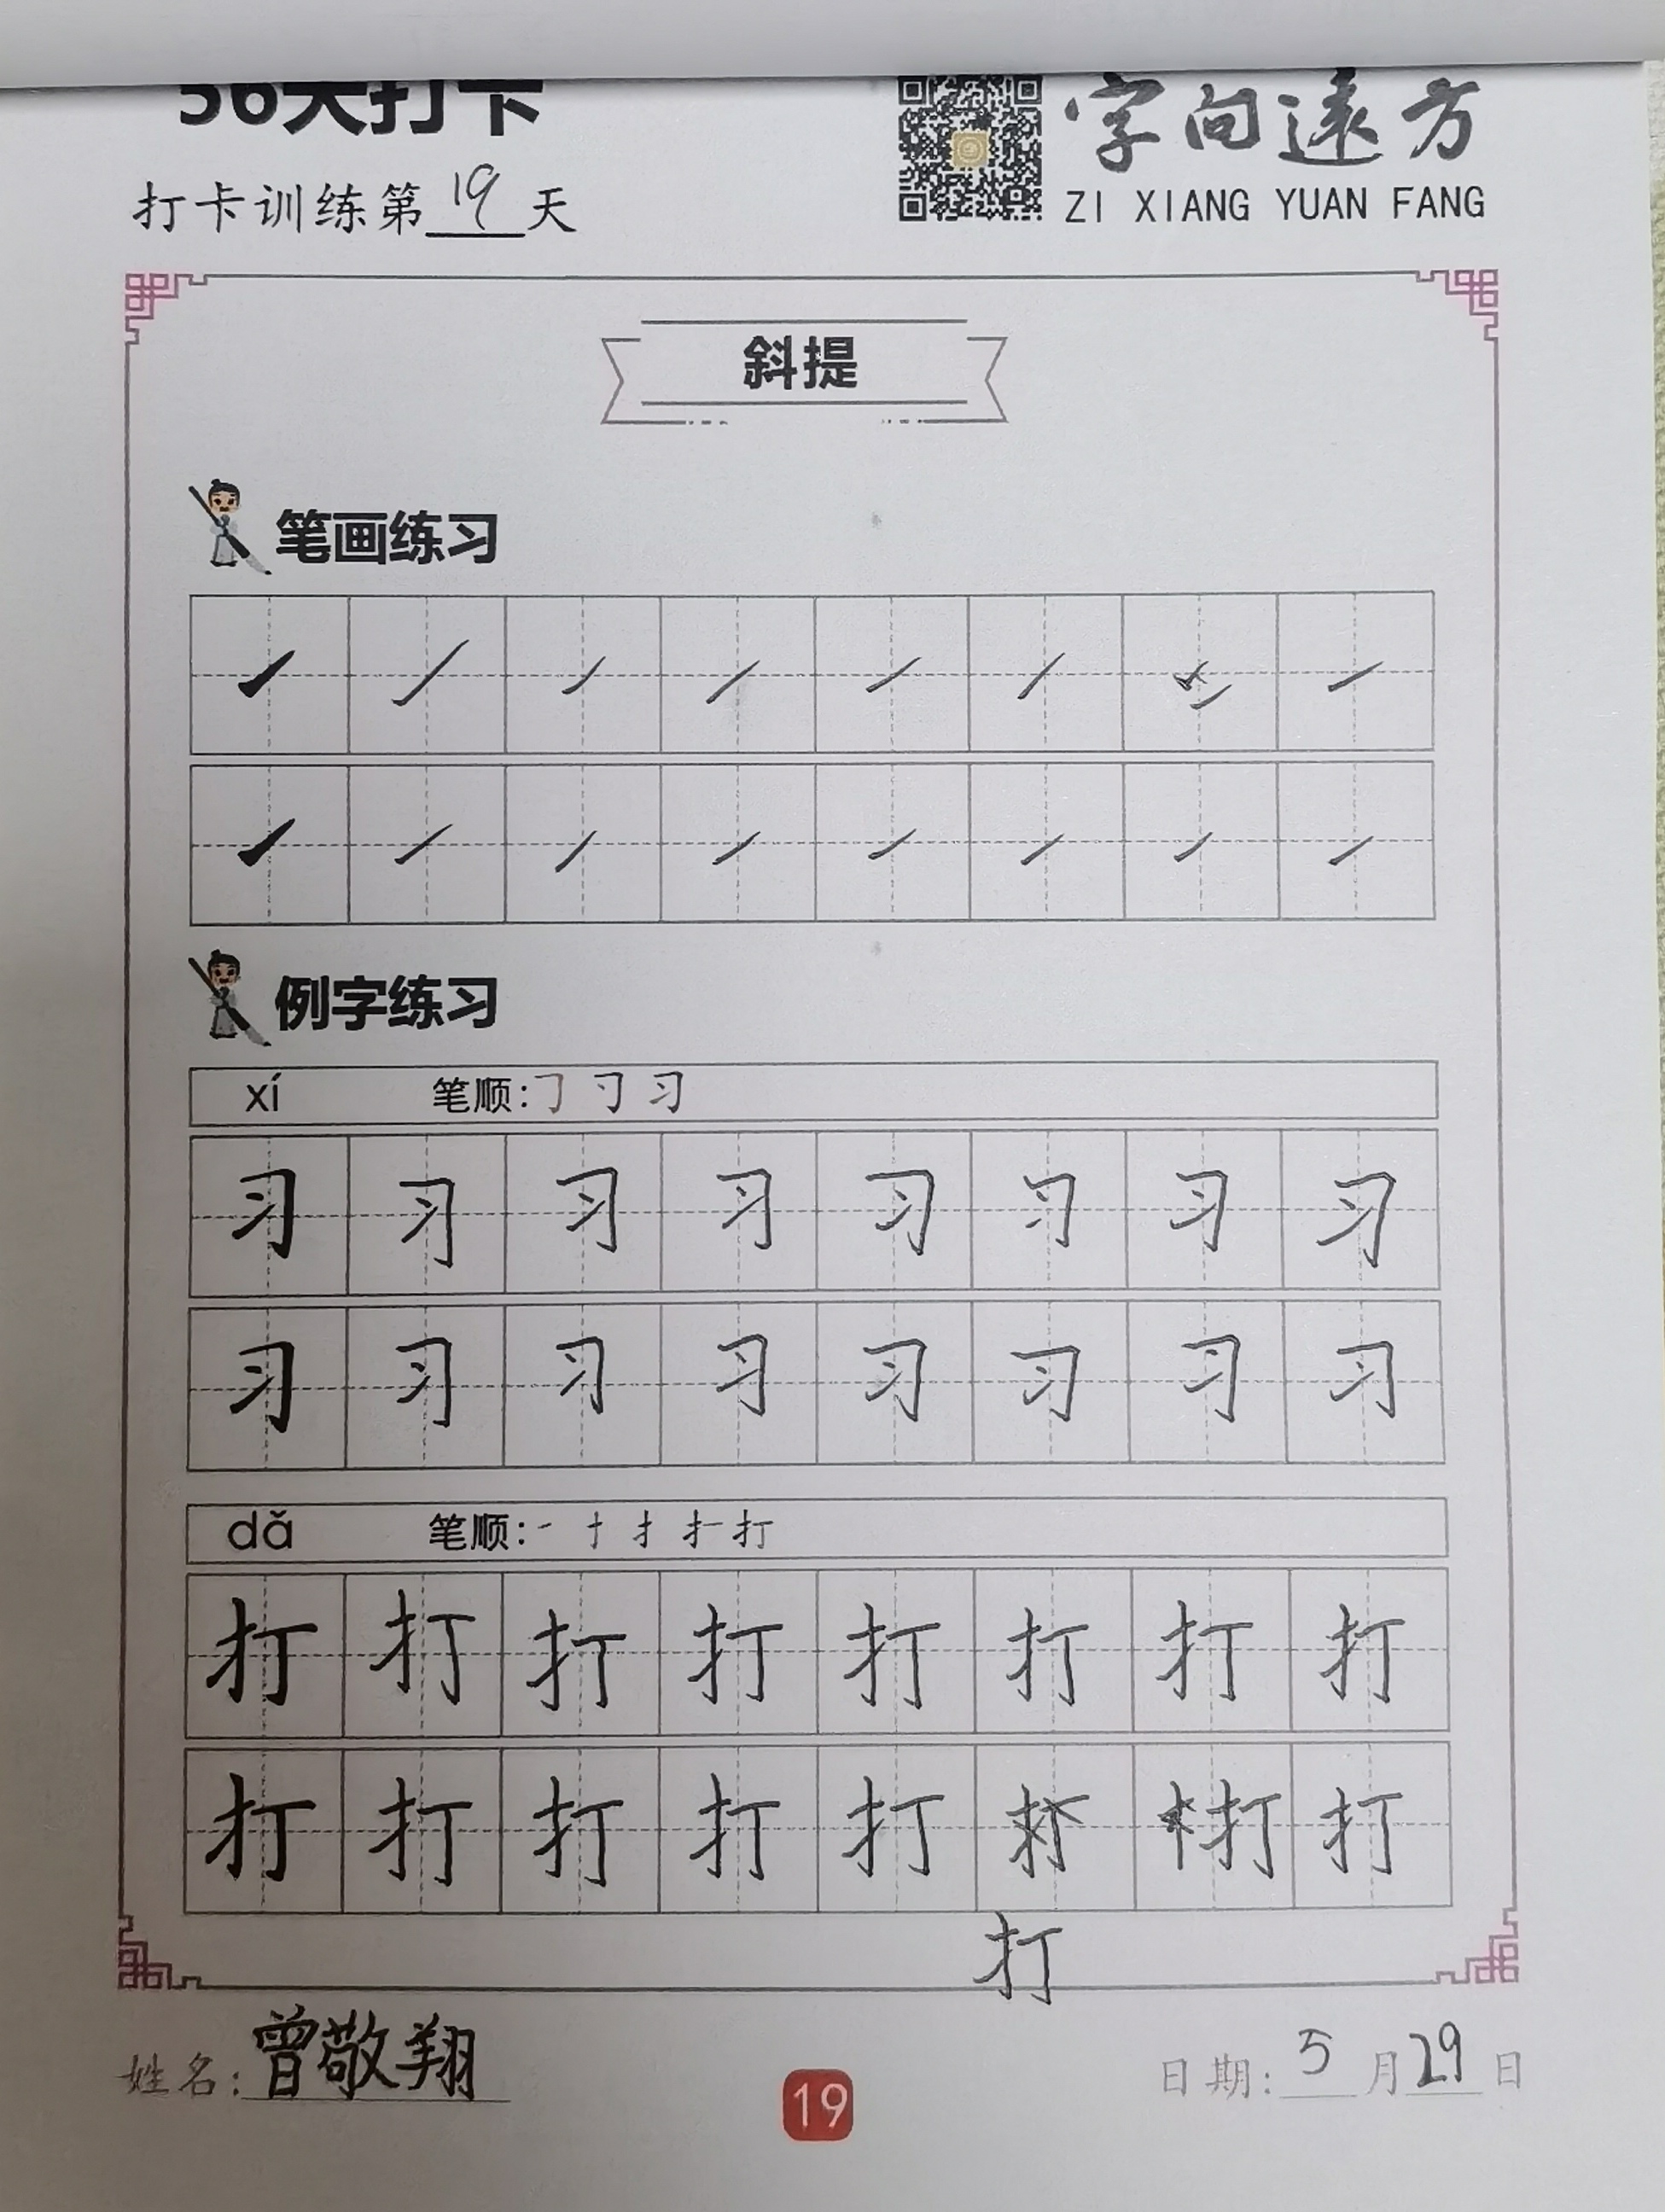 36天打卡
字向远方
ZI XIANG YUAN FANG
打卡训练第19天
斜提
笔画练习
例字练习
xí 笔顺:㇆ 习
习 习 习 习 习 习 习 习
习 习 习 习 习 习 习 习
dǎ 笔顺:一 十 扌 打
打 打 打 打 打 打 打 打
打 打 打 打 打 打 打
打
姓名:曾敬翔
19
日期:5月29日